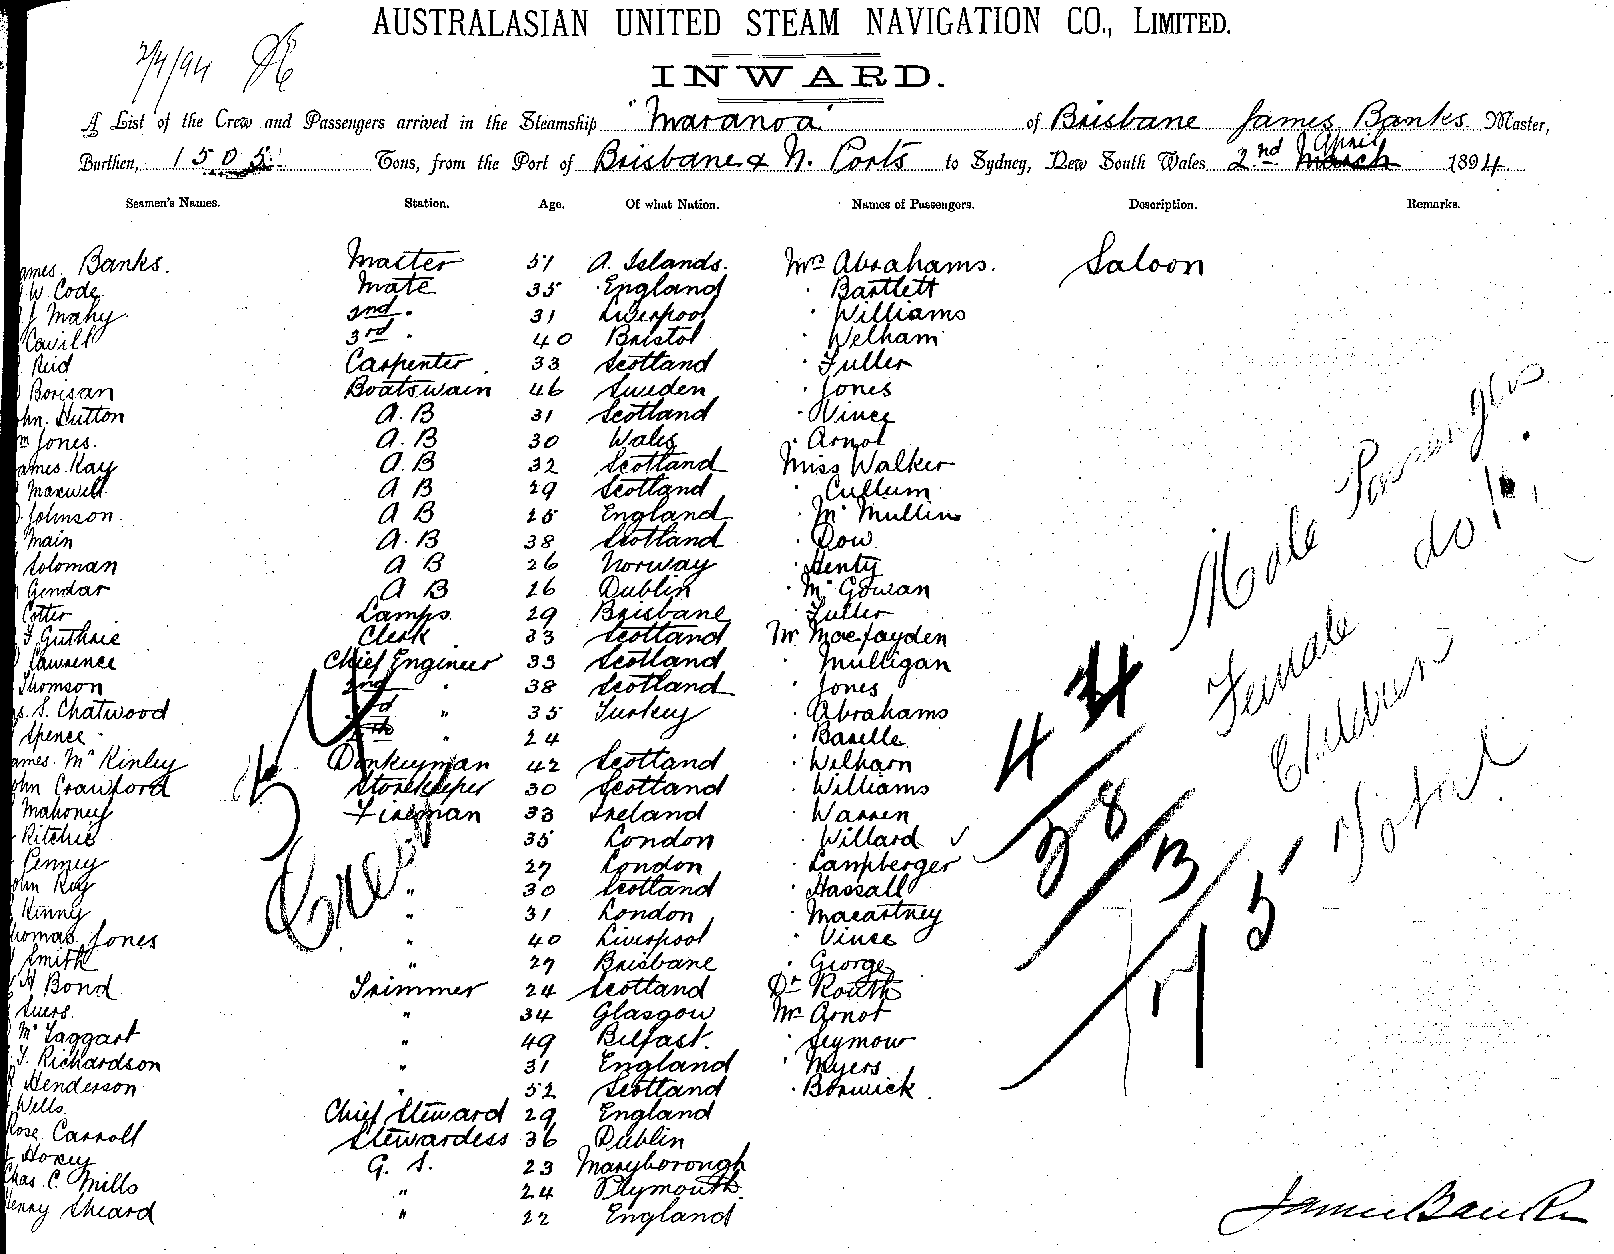 AUSTRALASIAN UNITED STEAM NAVIGATION CO., LIMITED.
2/4/94
INWARD.
A List of the Crew and Passengers arrived in the Steamship "Maranoa" of Brisbane James Banks Master,
Burthen, 1505 Tons, from the Port of Brisbane & N. Ports to Sydney, New South Wales 2nd March April 1894.
Seamen's Names. Station. Age. Of what Nation. Names of Passengers. Description. Remarks.
ames. Banks. Master 51 A. Islands. Mrs Abrahams. Saloon
W. Code Mate 35 England " Bartlett
J Mahy 2nd " 31 Liverpool " Williams
Cavill 3rd " 40 Bristol " Welham
Reid Carpenter 33 Scotland " Fuller
Borisan Boatswain 46 Sweden " Jones
ohn. Hutton A.B 31 Scotland " Vince
m Jones. A.B 30 Wales " Arnot
ames. Kay A.B 32 Scotland Miss Walker
Maxwell A B 29 Scotland " Cullum
Johnson A B 25 England " Mc Mullin
Main A.B 38 Scotland " Dow
Soloman A B 26 Norway " Henty
Gendar A B 26 Dublin " Mc Gowan
Cotter Lamps 29 Brisbane " Fuller
F Guthrie Clerk 33 Scotland Mr Macfayden
Lawrence Chief Engineer 33 Scotland " Mulligan
Thomson 2nd " 38 Scotland " Jones
s. S. Chatwood 3rd " 35 Turkey " Abrahams
Spence 4th " 24 " Baselle
ames. Mc Kinley Donkeyman 42 Scotland " Welham
ohn Crawford Storekeeper 30 Scotland " Williams
Mahoney Fireman 33 Ireland " Warren
Ritchie 35 London " Willard
Penney 27 London " Lampberger
ohn Roy " 30 Scotland " Hassall
Kinny " 31 London " Macartney
homas Jones " 40 Liverpool " Vince
Smith " 27 Brisbane " George
H Bond Trimmer 24 Scotland Dr Routh
Suers. " 34 Glasgow Mr Arnot
Mc Taggart " 49 Belfast. " Seymour
T. Richardson " 31 England " Myers
Henderson " 52 Scotland " Borwick
Wells Chief Steward 29 England
Rose Carroll Stewardess 36 Dublin
Horey G. S. 23 Maryborough
Chas. C. Mills " 24 Plymouth
Henry Sheard " 22 England
Crew
Male Passengers
Female do
Children
Total
James Banks